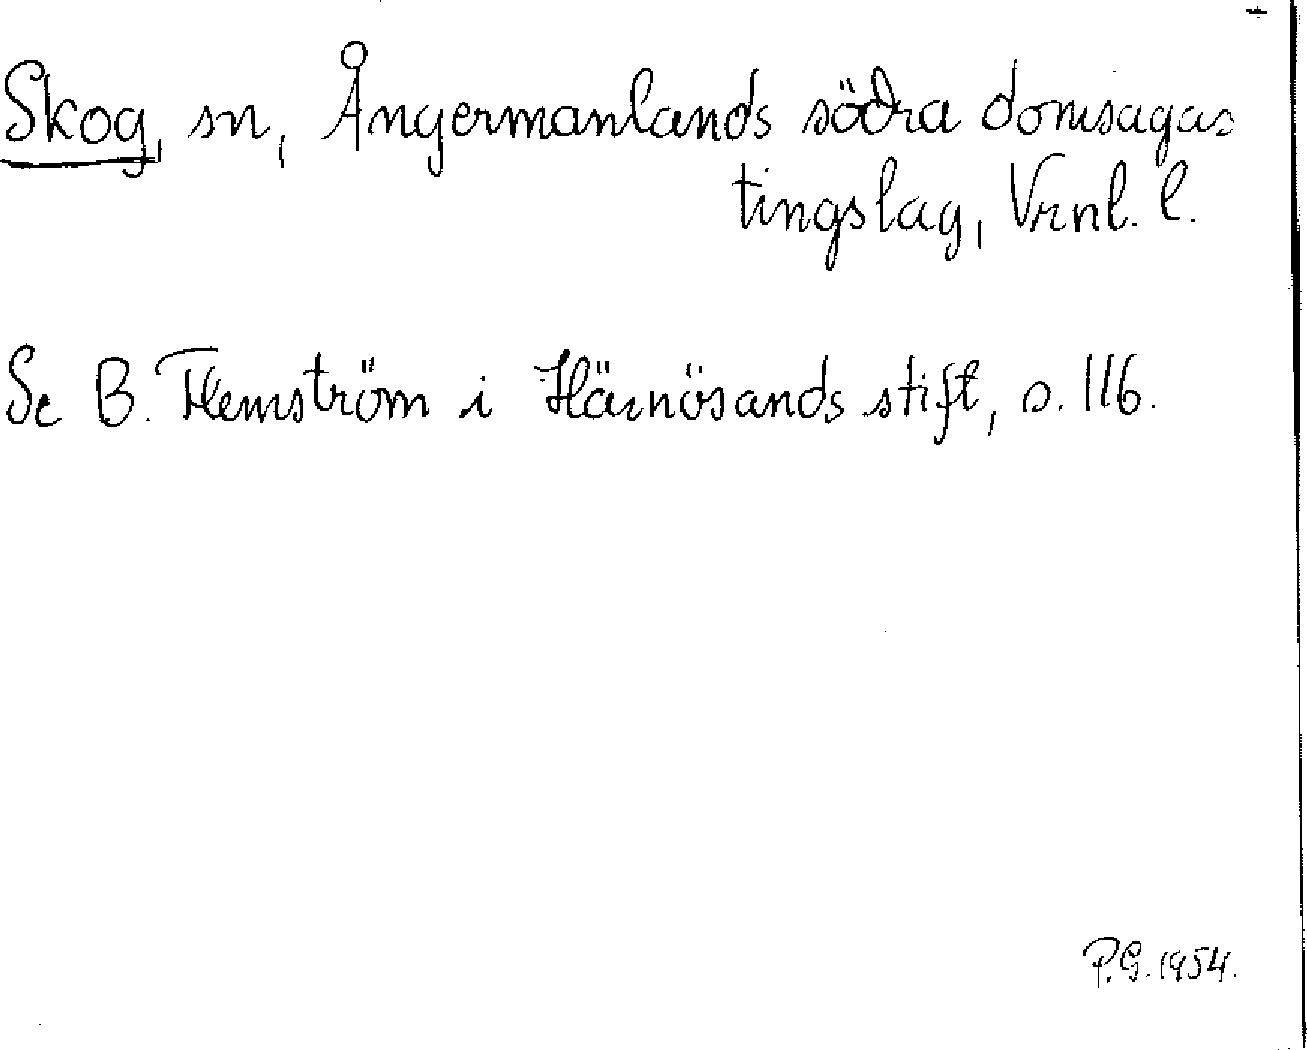 Skog, sn, Ångermanlands södra domsagas
tingslag, Vrnl. l.
Se B. Flemström i Härnösands stift, s. 116.
P.G. 1954.